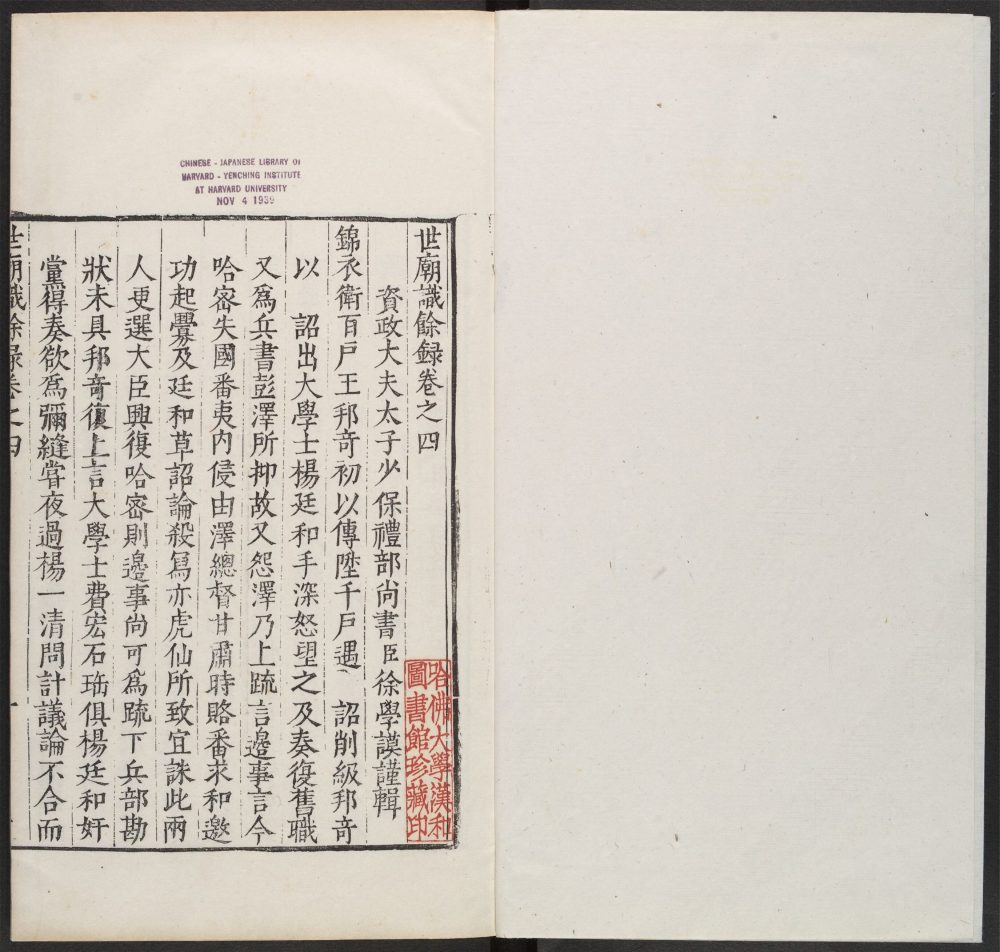 CHINESE - JAPANESE LIBRARY OF
HARVARD - YENCHING INSTITUTE
AT HARVARD UNIVERSITY
NOV 4 1939
世廟識餘録卷之四
資政大夫太子少保禮部尚書臣徐學謨謹輯
錦衣衛百戸王邦奇初以傳陞千戸遇 詔削級邦奇
以 詔出大學士楊廷和手深怒望之及奏復舊職
又爲兵書彭澤所抑故又怨澤乃上疏言邊事言今
哈密失國番夷内侵由澤總督甘肅時賂番求和邀
功起釁及廷和草詔論殺寫亦虎仙所致宜誅此兩
人更選大臣興復哈密則邊事尚可爲疏下兵部勘
狀未具邦奇復上言大學士費宏石珤俱楊廷和奸
黨得奏欲爲彌縫嘗夜過楊一清問計議論不合而
世廟識餘录卷之四
一
哈佛大學漢和
圖書館珍藏印